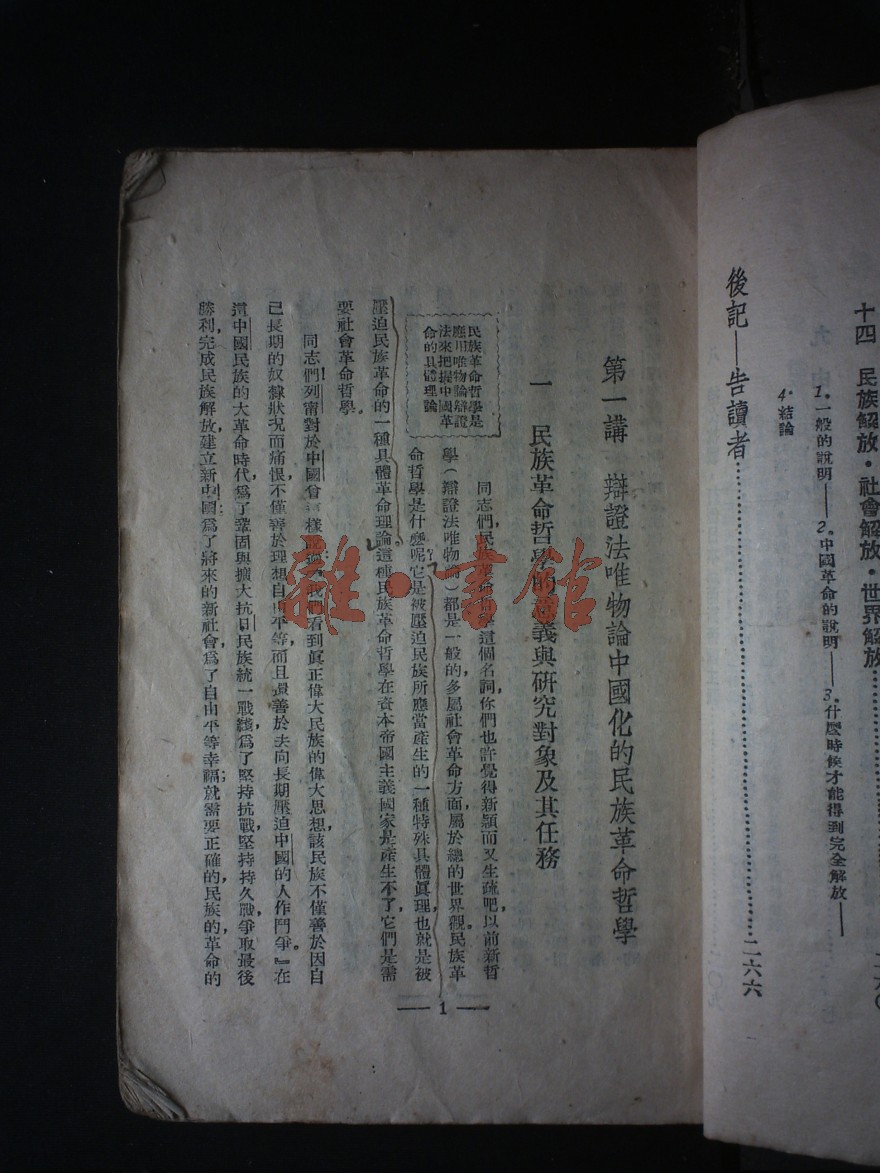 十四　民族解放・社會解放・世界解放
1.一般的說明——2.中國革命的說明——3.什麼時候才能得到完全解放——
4.結論
後記——告讀者………………二六六
第一講　辯證法唯物論中國化的民族革命哲學
一　民族革命哲學的意義與研究對象及其任務
民族革命哲學是
應用唯物論辯證
法來把握中國革
命的具體理論
同志們，民族革命哲學這個名詞，你們也許覺得新頴而又生疏吧，以前新哲
學（辯證法唯物論）都是一般的，多屬社會革命方面，屬於總的世界觀。民族革
命哲學是什麼呢？它是被壓迫民族所應當產生的一種特殊具體眞理，也就是被
壓迫民族革命的一種具體革命理論。這種民族革命哲學在資本帝國主義國家是產生不了，它們是需
要社會革命哲學。
同志們！列甯對於中國曾這樣說過：我們看到眞正偉大民族的偉大思想，該民族不僅善於因自
己長期的奴隸狀況而痛恨，不僅善於理想自由平等，而且還善於去向長期壓迫中國的人作鬥爭。』在
這中國民族的大革命時代，爲了鞏固與擴大抗日民族統一戰綫，爲了堅持抗戰，堅持持久戰，爭取最後
勝利，完成民族解放，建立新中國；爲了將來的新社會，爲了自由平等幸福，就需要正確的民族的，革命的
1
雜・書館